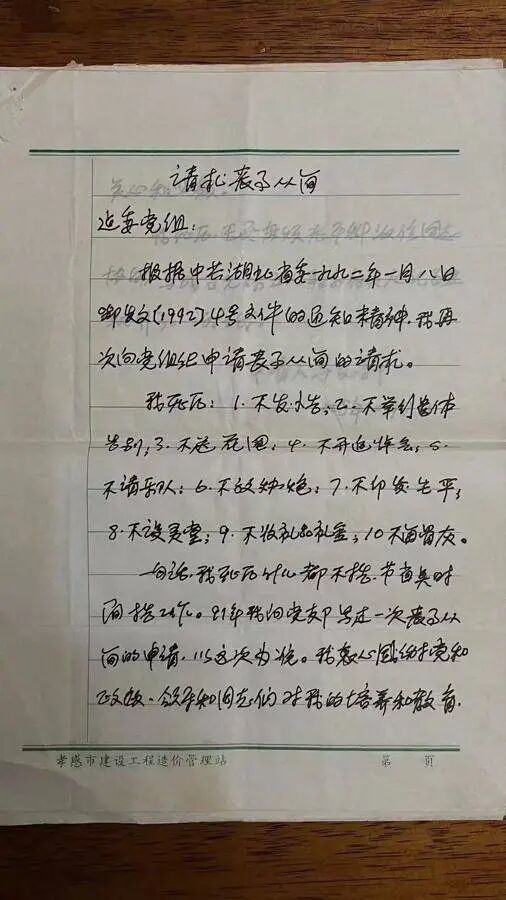 请求丧事从简
建委党组：
根据中共湖北省委一九九二年一月八日
鄂发[1992]4号文件的通知精神，我再
次向党组织申请丧事从简的请求。
我死后：1.不发讣告；2.不举行遗体
告别；3.不送花圈；4.不开追悼会；5.
不请乐队；6.不放炮；7.不印发生平；
8.不设灵堂；9.不收礼品礼金；10不留骨灰。
一句话，我死后什么都不搞，节省真时
间搞工作。91年我向党支部写过一次丧事从
简的申请，以这次为准。我衷心感谢党和
政府、领导和同志们对我的培养和教育，
孝感市建设工程造价管理站 第 页